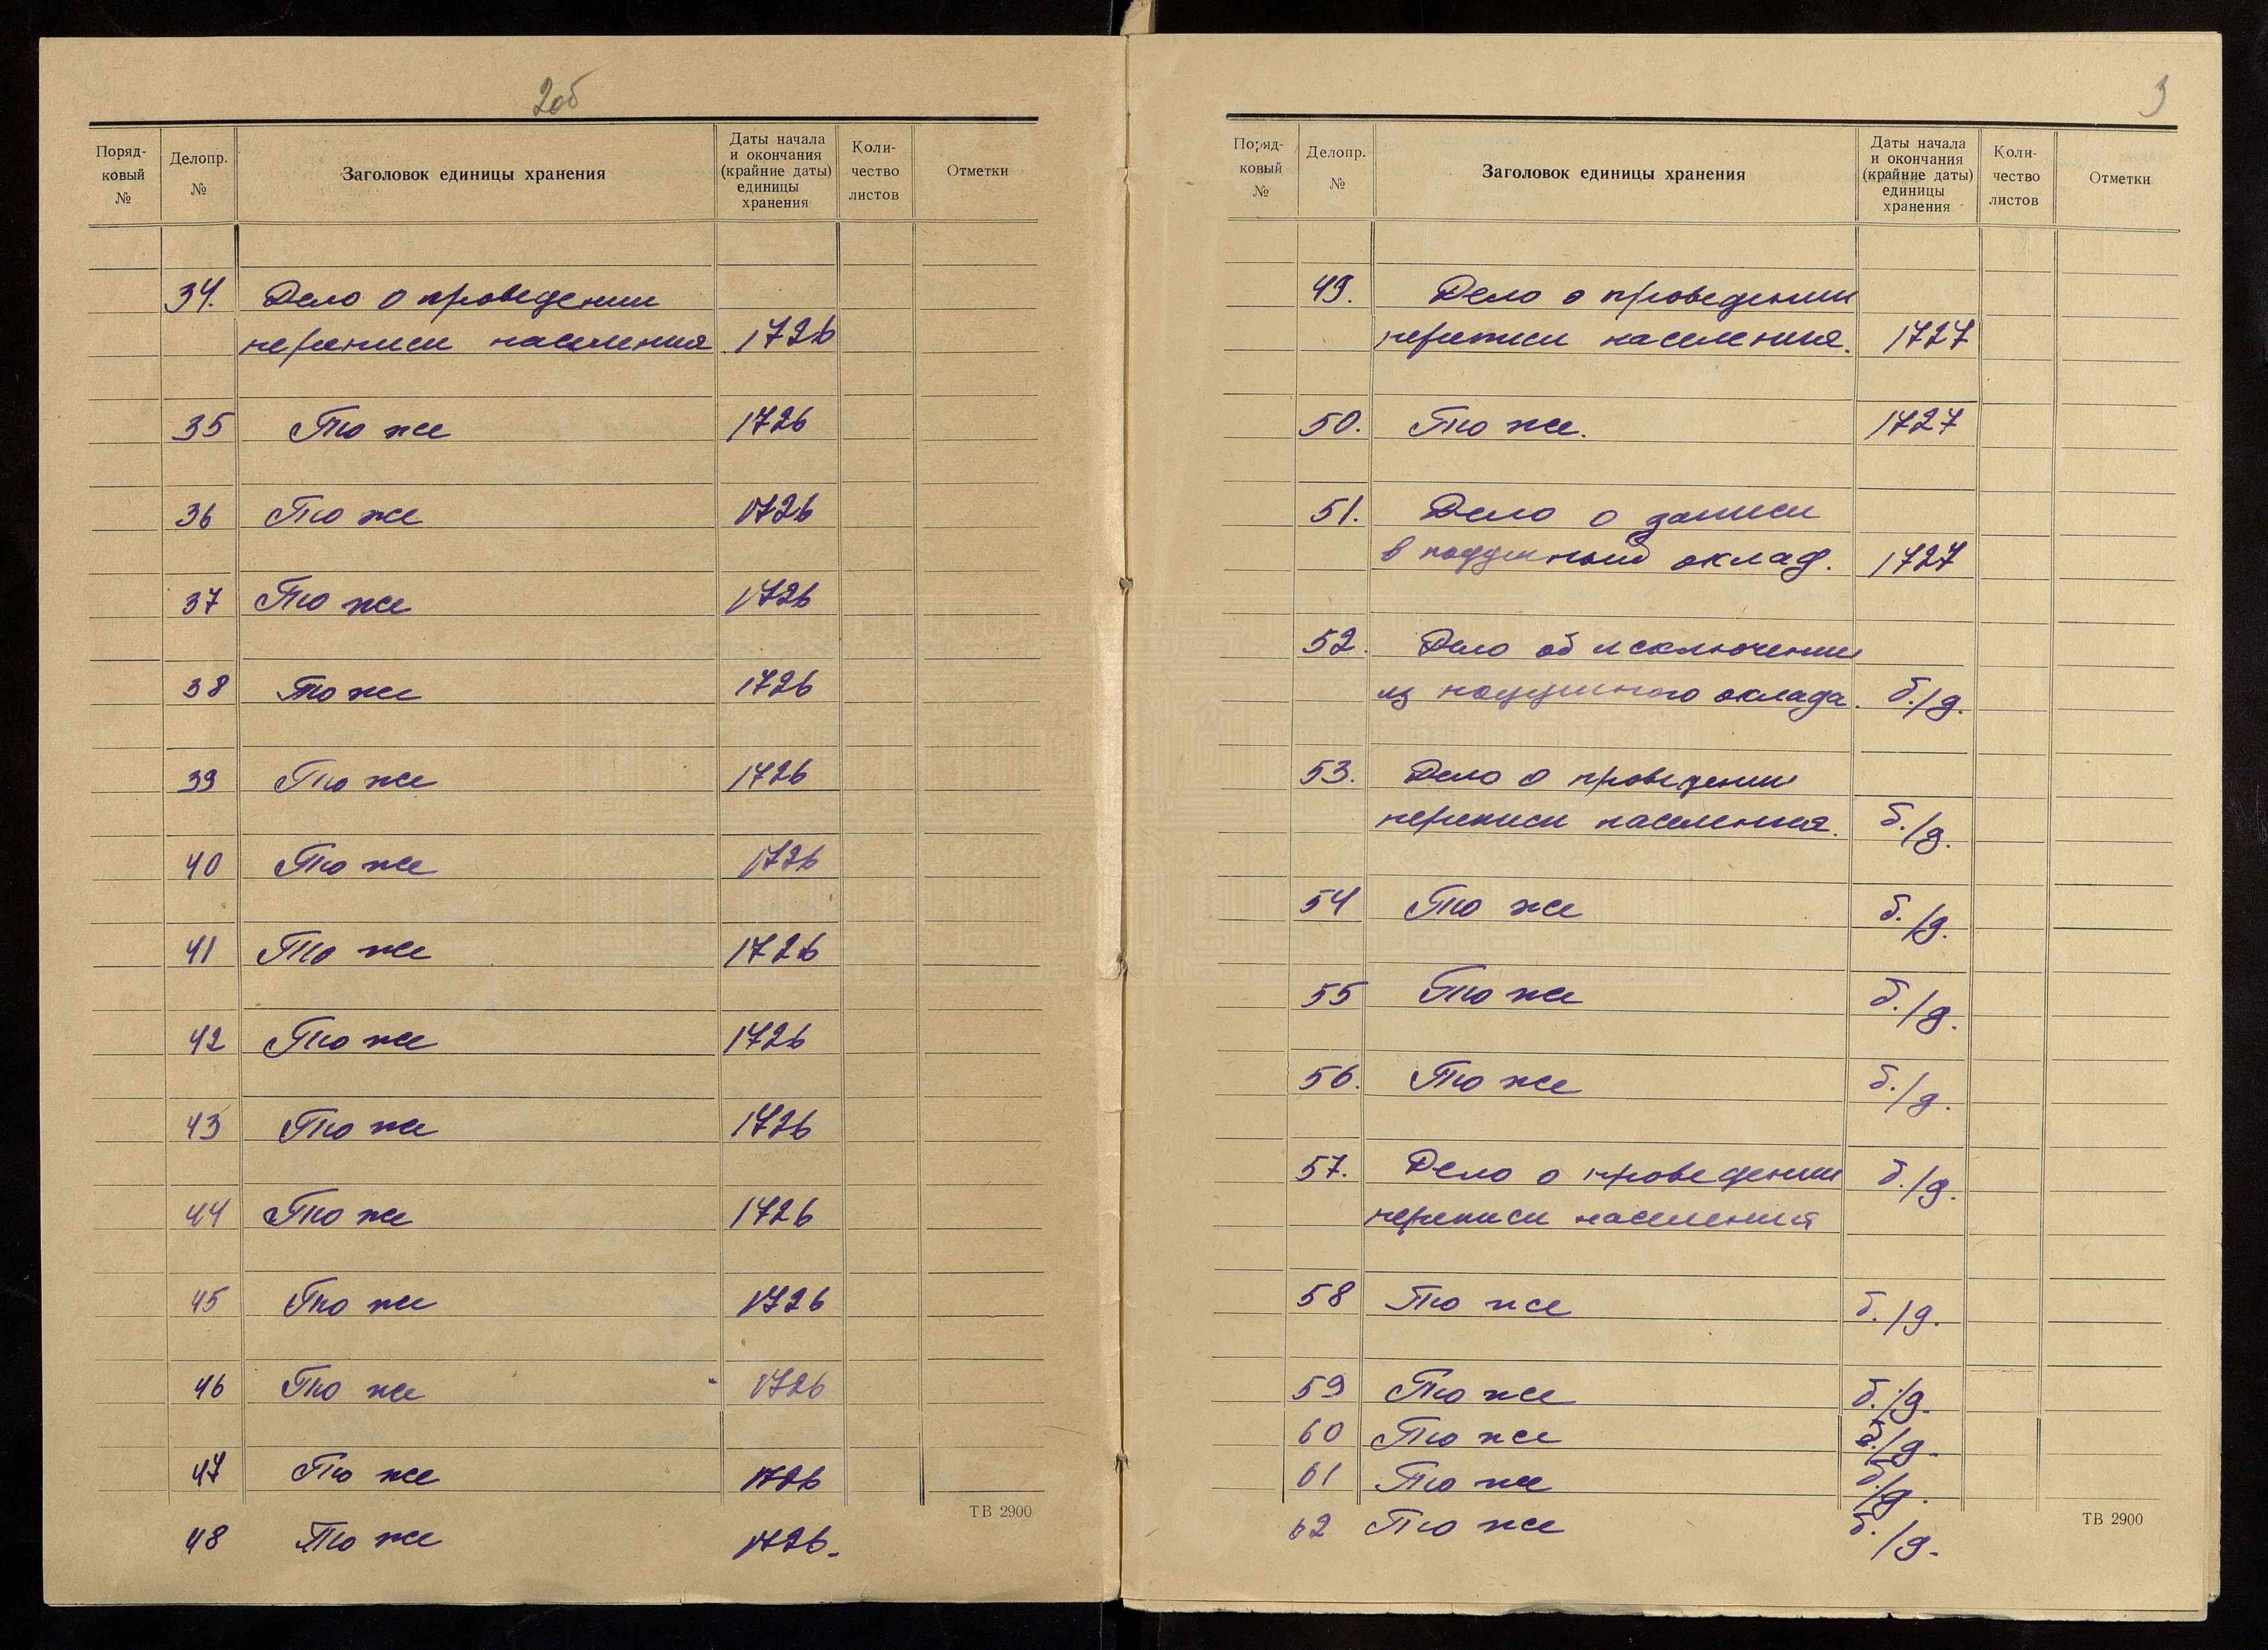 2об
Поряд-
ковый
№
Делопр.
№
Заголовок единицы хранения
Даты начала
и окончания
(крайние даты)
единицы
хранения
Коли-
чество
листов
Отметки
34. Дело о проведении
переписи населения 1726
35 То же 1726
36 То же 1726
37 То же 1726
38 То же 1726
39 То же 1726
40 То же 1726
41 То же 1726
42 То же 1726
43 То же 1726
44 То же 1726
45 То же 1726
46 То же 1726
47 То же 1726
48 То же 1726.
ТВ 2900
3
Поряд-
ковый
№
Делопр.
№
Заголовок единицы хранения
Даты начала
и окончания
(крайние даты)
единицы
хранения
Коли-
чество
листов
Отметки
49. Дело о проведении
переписи населения. 1727
50. То же. 1727
51. Дело о записи
в подушный оклад. 1727
52. Дело об исключении
из подушного оклада. б./д.
53. Дело о проведении
переписи населения. б./д.
54 То же б./д.
55 То же б./д.
56. То же б./д.
57. Дело о проведении б./д.
переписи населения
58 То же б./д.
59 То же б./д.
60 То же б./д.
61 То же б./д.
62 То же б./д.
ТВ 2900